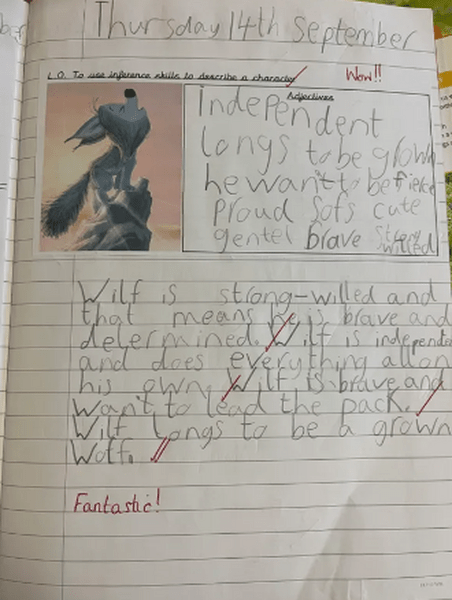 Thursday 14th September
L.O. To use inference skills to describe a character
Wow!!
Adjectives
independent
longs to be grown
he want to be fierce
proud Sofs cute
gentel brave strong
willed
Wilf is strong-willed and
that means he is brave and
determined. Wilf is independe
and does everything allon
his own. Wilf is brave and
want to lead the pack.
Wilf longs to be a grown
Wolf.
Fantastic!